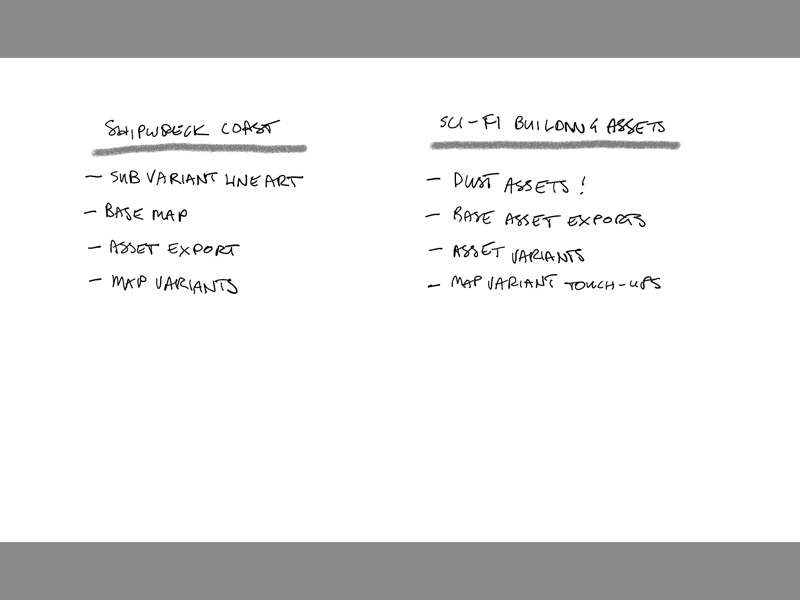 SHIPWRECK COAST
- SUB VARIANT LINEART
- BASE MAP
- ASSET EXPORT
- MAP VARIANTS
SCI-FI BUILDING ASSETS
- DUST ASSETS!
- BASE ASSET EXPORTS
- ASSET VARIANTS
- MAP VARIANT TOUCH-UPS